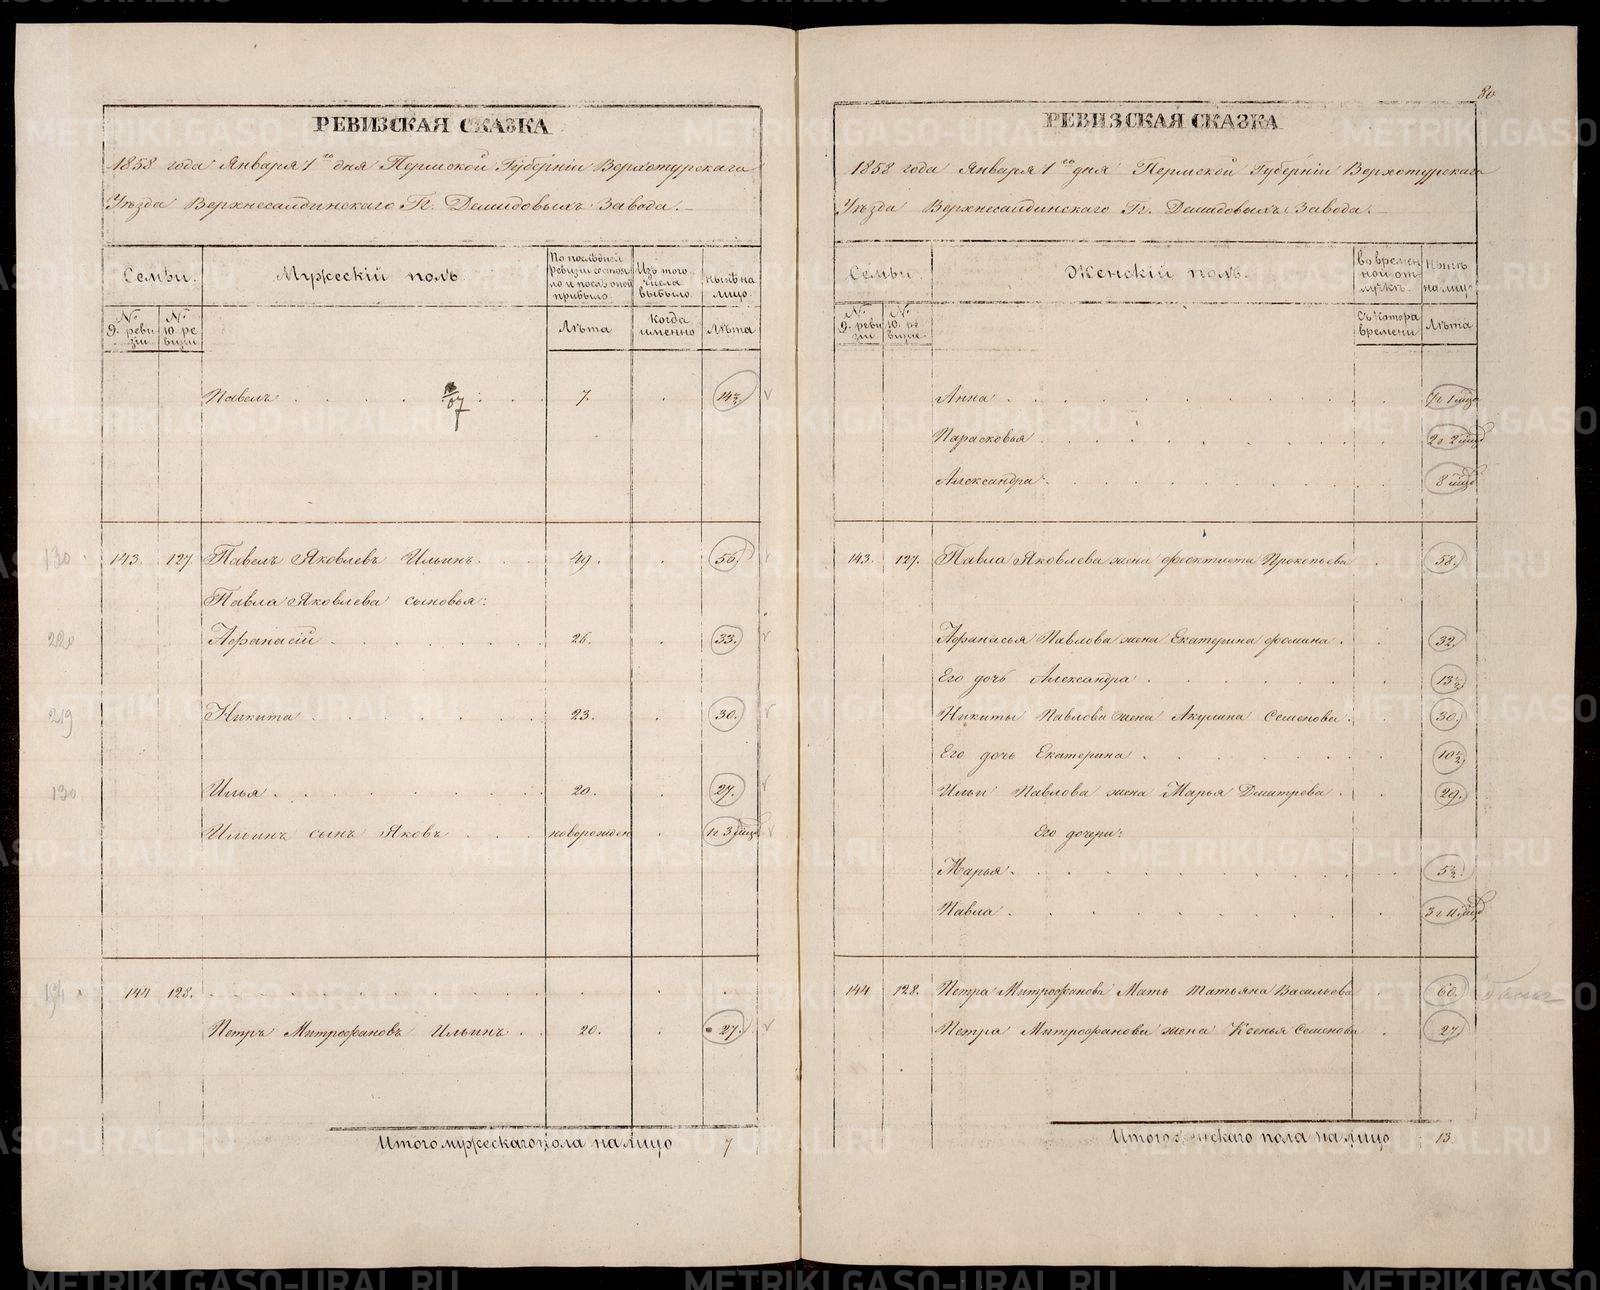 РЕВИЗСКАЯ СКАЗКА
1858 года Января 1го дня Пермской Губерніи Верхотурскаго
Уѣзда Верхнесалдинскаго Гг. Демидовыхъ Завода.
Семьи.
Мужескій полъ.
По послѣдней ревизіи состояло и послѣ оной прибыло.
Изъ того числа выбыло.
Нынѣ на лицо.
№ 9. ревизіи
№ 10. ревизіи
Лѣта
Когда именно
Лѣта
Павелъ 7. 14½.
143. 127. Павелъ Яковлевъ Ильинъ. 49. 56.
Павла Яковлева сыновья:
Афанасій 26. 33.
Никита 23. 30.
Илья 20. 27.
Ильинъ сынъ Яковъ новорожден 1 г 3 мцъ
144 128.
Петръ Митрофановъ Ильинъ 20. 27.
Итого мужескаго пола на лицо 7
130
220
219
130
80
РЕВИЗСКАЯ СКАЗКА
1858 года Января 1го дня Пермской Губерніи Верхотурскаго
Уѣзда Верхнесалдинскаго Гг. Демидовыхъ Завода.
Семьи.
Женскій полъ.
во временной отлучкѣ.
Нынѣ на лицо
№ 9. ревизіи
№ 10. ревизіи
Съ котора времени
Лѣта
Анна 7 г 1 мцъ
Парасковья 2 г 2 мцъ
Александра 8 мцъ
143. 127. Павла Яковлева жена Феоктиста Прокопьева 58.
Афанасья Павлова жена Екатерина Фомина 32.
Его дочь Александра 13½
Никиты Павлова жена Акулина Семенова 30.
Его дочь Екатерина 10½
Ильи Павлова жена Марья Дмитрева 29.
Его дочери:
Марья 5½.
Павла 3 г 11 мцъ
144. 128. Петра Митрофанова Мать Татьяна Васильева 60.
Петра Митрофанова жена Ксенья Семенова 27
Итого женскаго пола на лицо 13.
METRIKI.GASO-URAL.RU